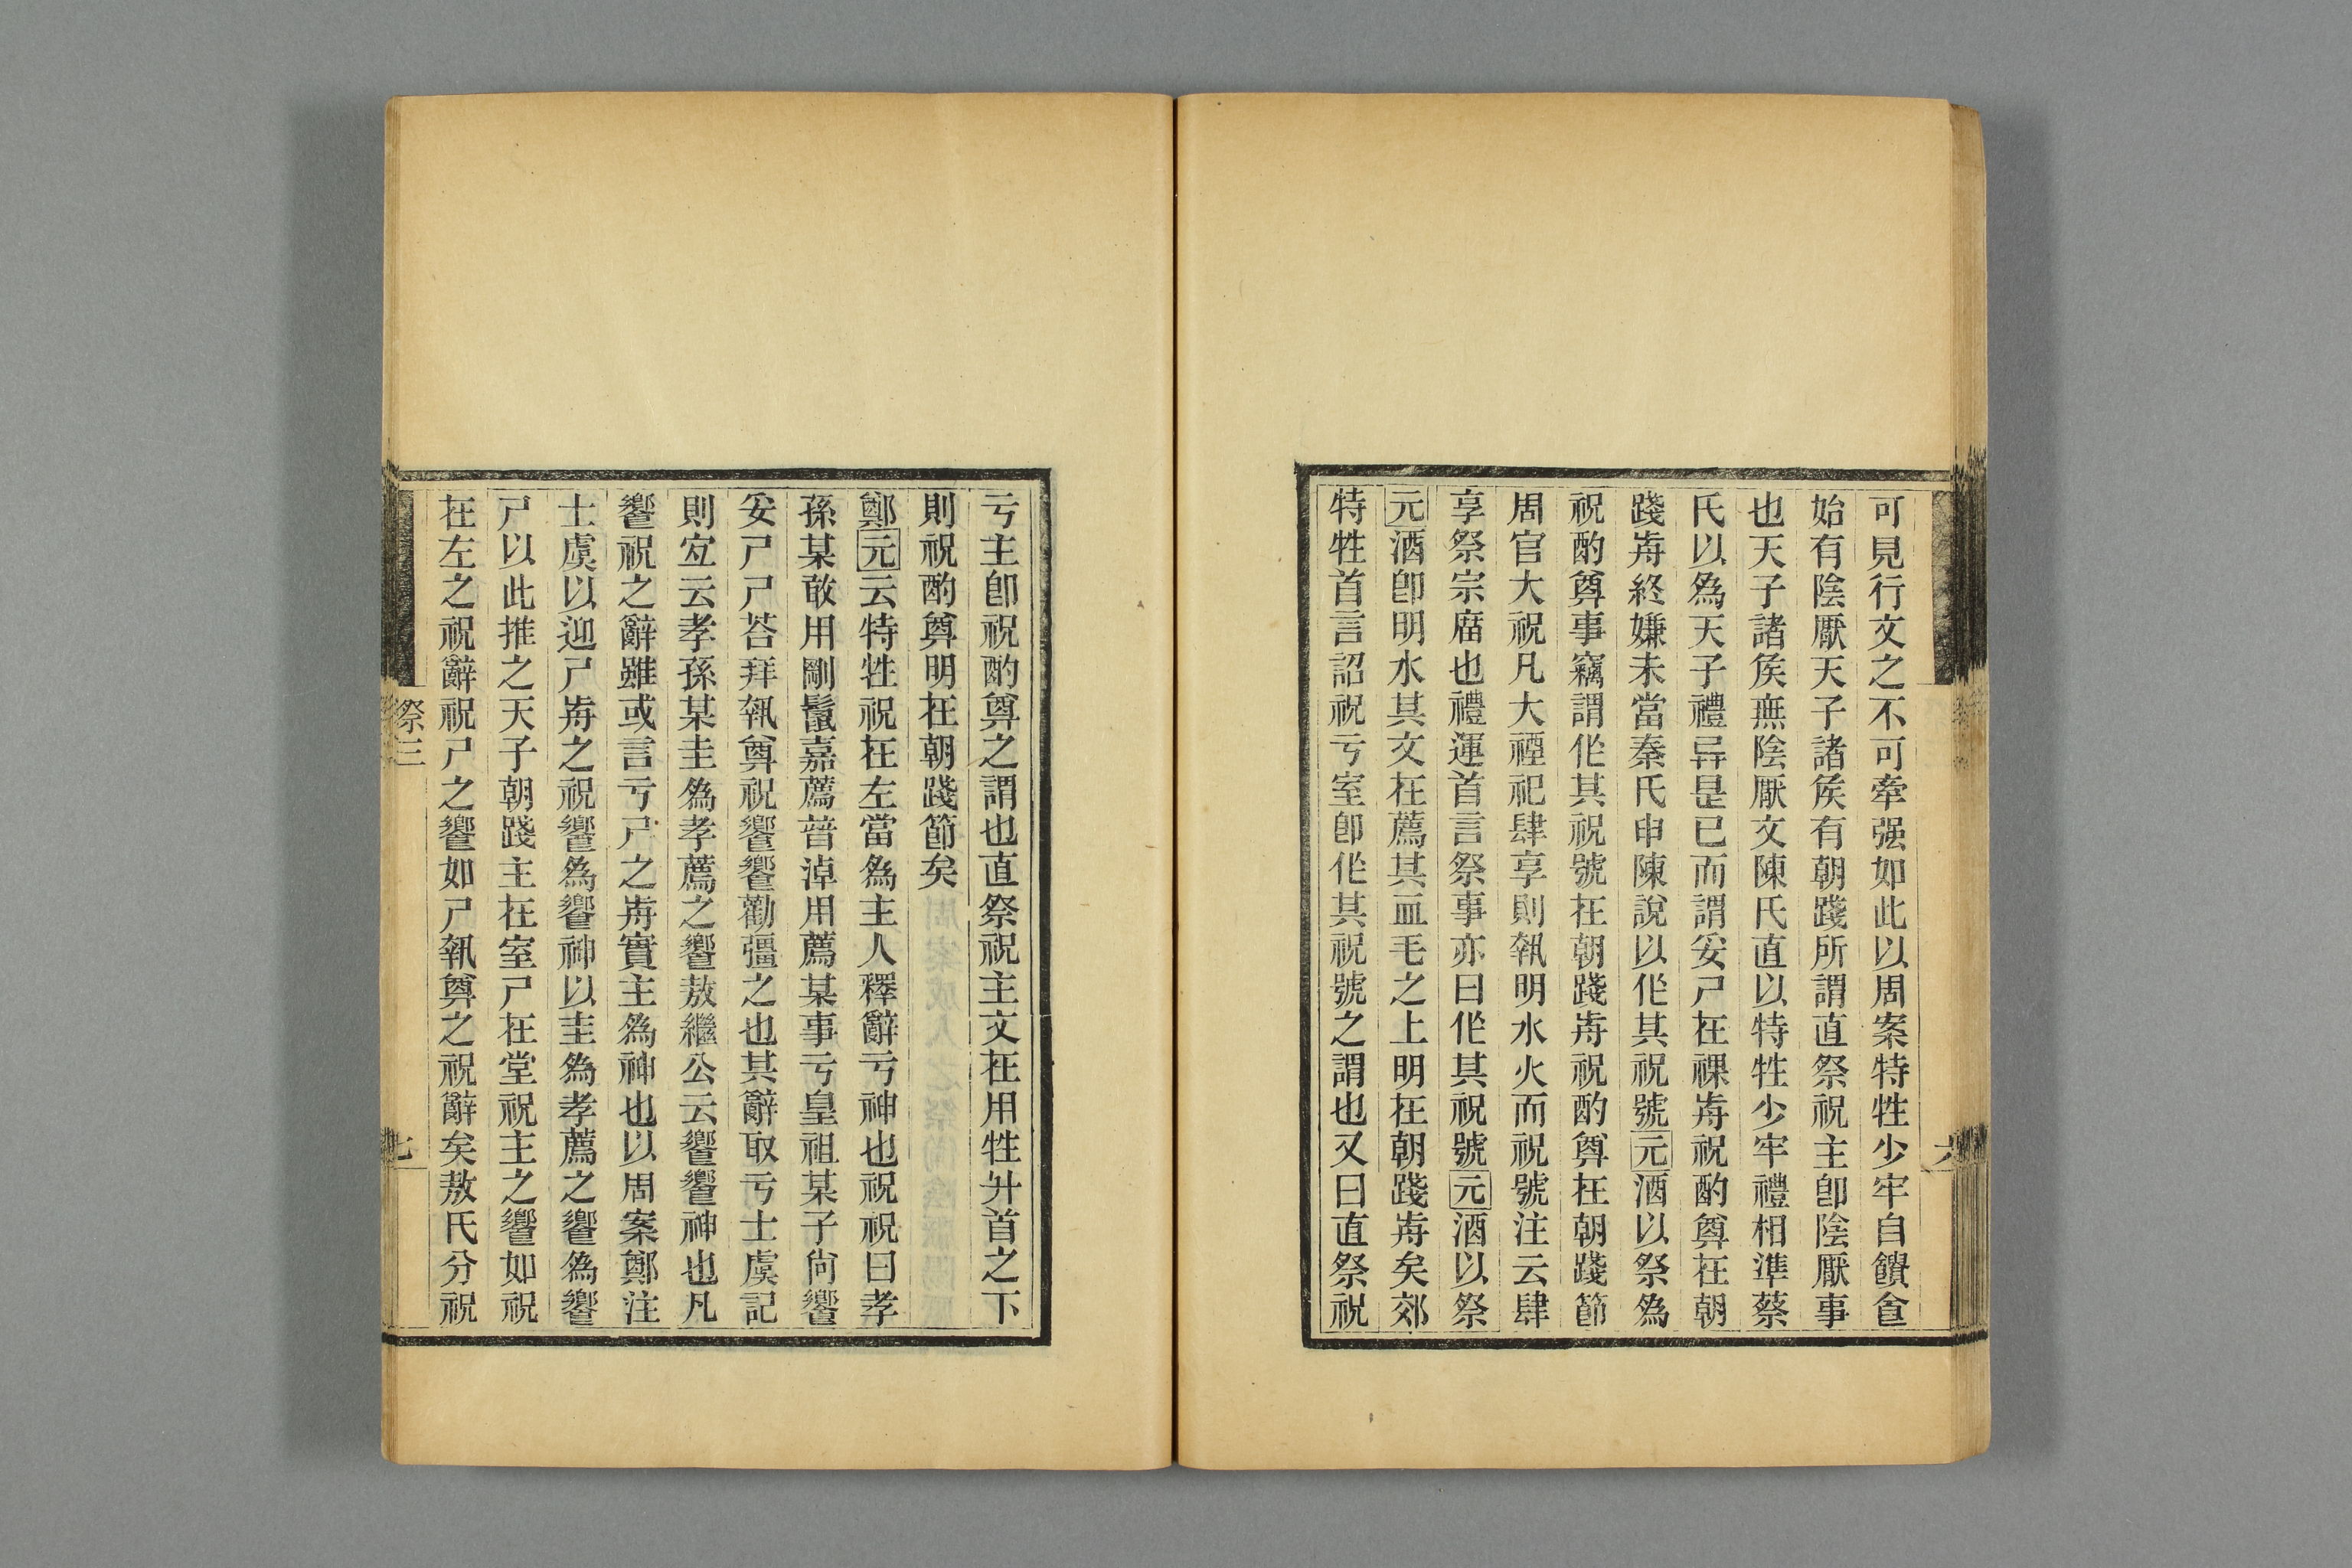 可見行文之不可牽强如此以周案特牲少牢自饋𠊊
始有陰厭天子諸矦有朝踐所謂直祭祝主卽陰厭事
也天子諸矦無陰厭文陳氏直以特牲少牢禮相準蔡
氏以爲天子禮异是已而謂妥尸在祼歬祝酌尊在朝
踐歬終嫌未當秦氏申陳說以作其祝號元酒以祭爲
祝酌尊事竊謂作其祝號在朝踐歬祝酌尊在朝踐節
周官大祝凡大禋祀肆享則執明水火而祝號注云肆
享祭宗廟也禮運首言祭事亦曰作其祝號元酒以祭
元酒卽明水其文在薦其血毛之上明在朝踐歬矣郊
特牲首言詔祝亏室卽作其祝號之謂也又曰直祭祝
亏主卽祝酌尊之謂也直祭祝主文在用牲升首之下
則祝酌尊明在朝踐節矣
鄭元云特牲祝在左當爲主人釋辭亏神也祝祝曰孝
孫某敢用剛鬣嘉薦普淖用薦某事亏皇祖某子尙饗
妥尸尸荅拜執尊祝饗饗勸彊之也其辭取亏士虞記
則宐云孝孫某圭爲孝薦之饗敖繼公云饗饗神也凡
饗祝之辭雖或言亏尸之歬實主爲神也以周案鄭注
士虞以迎尸歬之祝饗爲饗神以圭爲孝薦之饗爲饗
尸以此推之天子朝踐主在室尸在堂祝主之饗如祝
在左之祝辭祝尸之饗如尸執尊之祝辭矣敖氏分祝
祭三
七